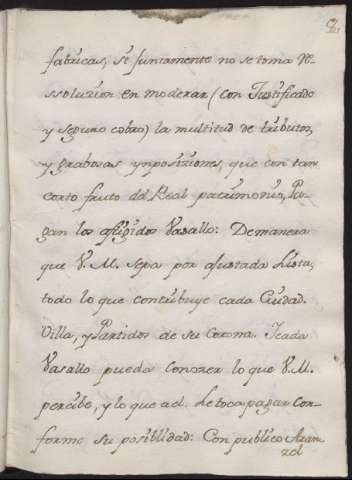 fabricas, si juntamente no se toma re-
ssoluzion en moderar (con Justificado
y seguro cobro) la multitud de tributos,
y grabosas ynposiziones, que con tan
corto fruto del Real patrimonio, Pa-
gan los afligidos Vasallo: De manera
que V. M. sepa por ajustada Lista,
todo lo que contribuye cada Ciudad.
Villa, y Partidos de su Corona. Icada
Vasallo pueda conozer lo que V. M.
percibe, y lo que a el. Le toca pagar con-
forme su posiblidad: Con publico Aran
zel